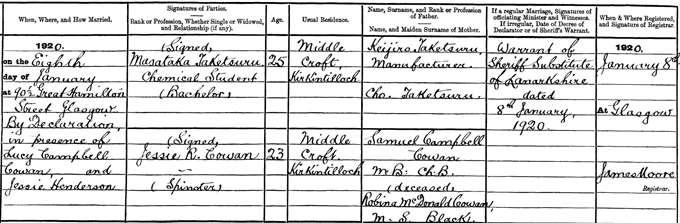 When, Where, and How Married.
Signatures of Parties.
Rank or Profession, Whether Single or Widowed, and Relationship (if any).
Age.
Usual Residence.
Name, Surname, and Rank or Profession of Father.
Name, and Maiden Surname of Mother.
If a regular Marriage, Signatures of officiating Minister and Witnesses.
If irregular, Date of Decree of Declarator or of Sheriff's Warrant.
When & Where Registered, and Signature of Registrar.
1920.
on the Eighth
day of January
at 903 Great Hamilton
Street Glasgow
By Declaration,
in presence of
Lucy Campbell
Cowan, and
Jessie Henderson
(Signed)
Masataka Taketsuru
Chemical Student
(Bachelor)
25
Middle
Croft,
Kirkintilloch
Keijiro Taketsuru,
Manufacturer
Cho. Taketsuru.
Warrant of
Sheriff Substitute
of Lanarkshire
dated
8th January,
1920.
1920.
January 8th
At Glasgow
(Signed)
Jessie R. Cowan
(Spinster)
23
Middle
Croft,
Kirkintilloch
Samuel Campbell
Cowan
M.B. Ch.B.
(deceased)
Robina McDonald Cowan,
M. S. Black.
James Moore
Registrar.